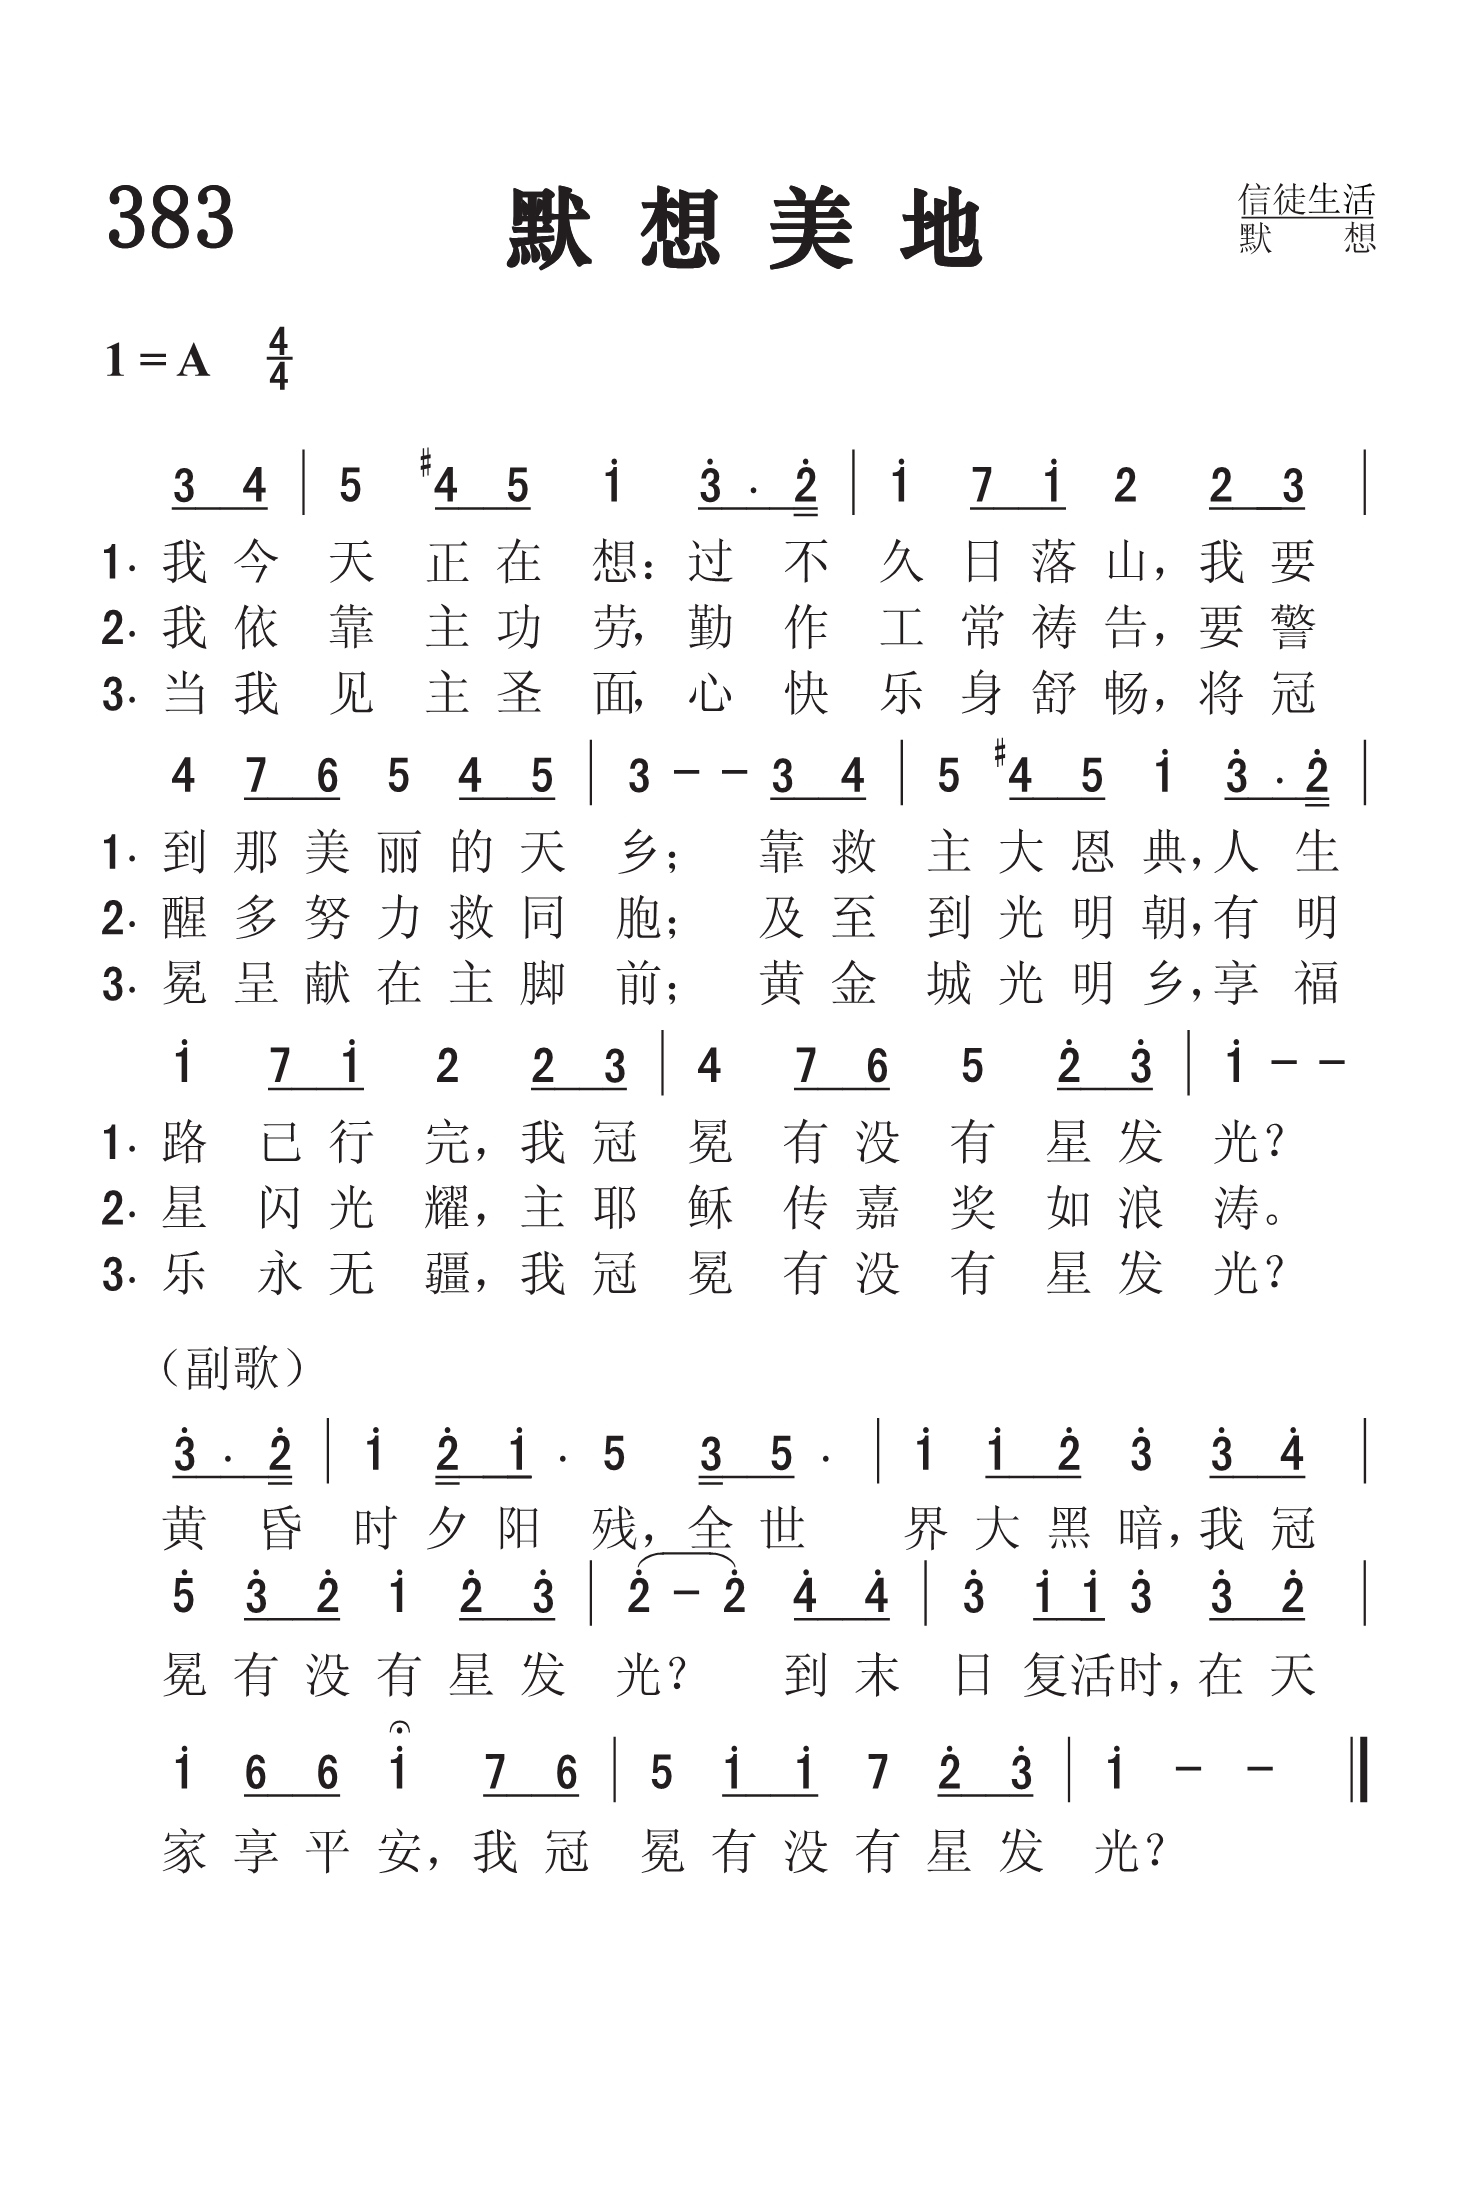 383 默想美地 信徒生活
默想
1=A 4/4
3 4 | 5 #4 5 i̇ 3̇ . 2̇ | i̇ 7 i̇ 2 2 3 |
1. 我今天正在想：过不久日落山，我要
2. 我依靠主功劳，勤作工常祷告，要警
3. 当我见主圣面，心快乐身舒畅，将冠
4 7 6 5 4 5 | 3 – – 3 4 | 5 #4 5 i̇ 3̇ . 2̇ |
1. 到那美丽的天乡；靠救主大恩典，人生
2. 醒多努力救同胞；及至到光明朝，有明
3. 冕呈献在主脚前；黄金城光明乡，享福
i̇ 7 i̇ 2 2 3 | 4 7 6 5 2̇ 3̇ | i̇ – –
1. 路已行完，我冠冕有没有星发光？
2. 星闪光耀，主耶稣传嘉奖如浪涛。
3. 乐永无疆，我冠冕有没有星发光？
（副歌）
3̇ . 2̇ | i̇ 2̇ i̇ . 5 3 5 . | i̇ i̇ 2̇ 3̇ 3̇ 4̇ |
黄昏时夕阳残，全世界大黑暗，我冠
5̇ 3̇ 2̇ i̇ 2̇ 3̇ | 2̇ – 2̇ 4̇ 4̇ | 3̇ i̇ i̇ 3̇ 3̇ 2̇ |
冕有没有星发光？到末日复活时，在天
i̇ 6 6 i̇ 7 6 | 5 i̇ i̇ 7 2̇ 3̇ | i̇ – – ‖
家享平安，我冠冕有没有星发光？